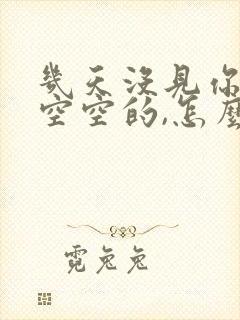 幾天沒見你
空空的,怎麼
霓兔兔